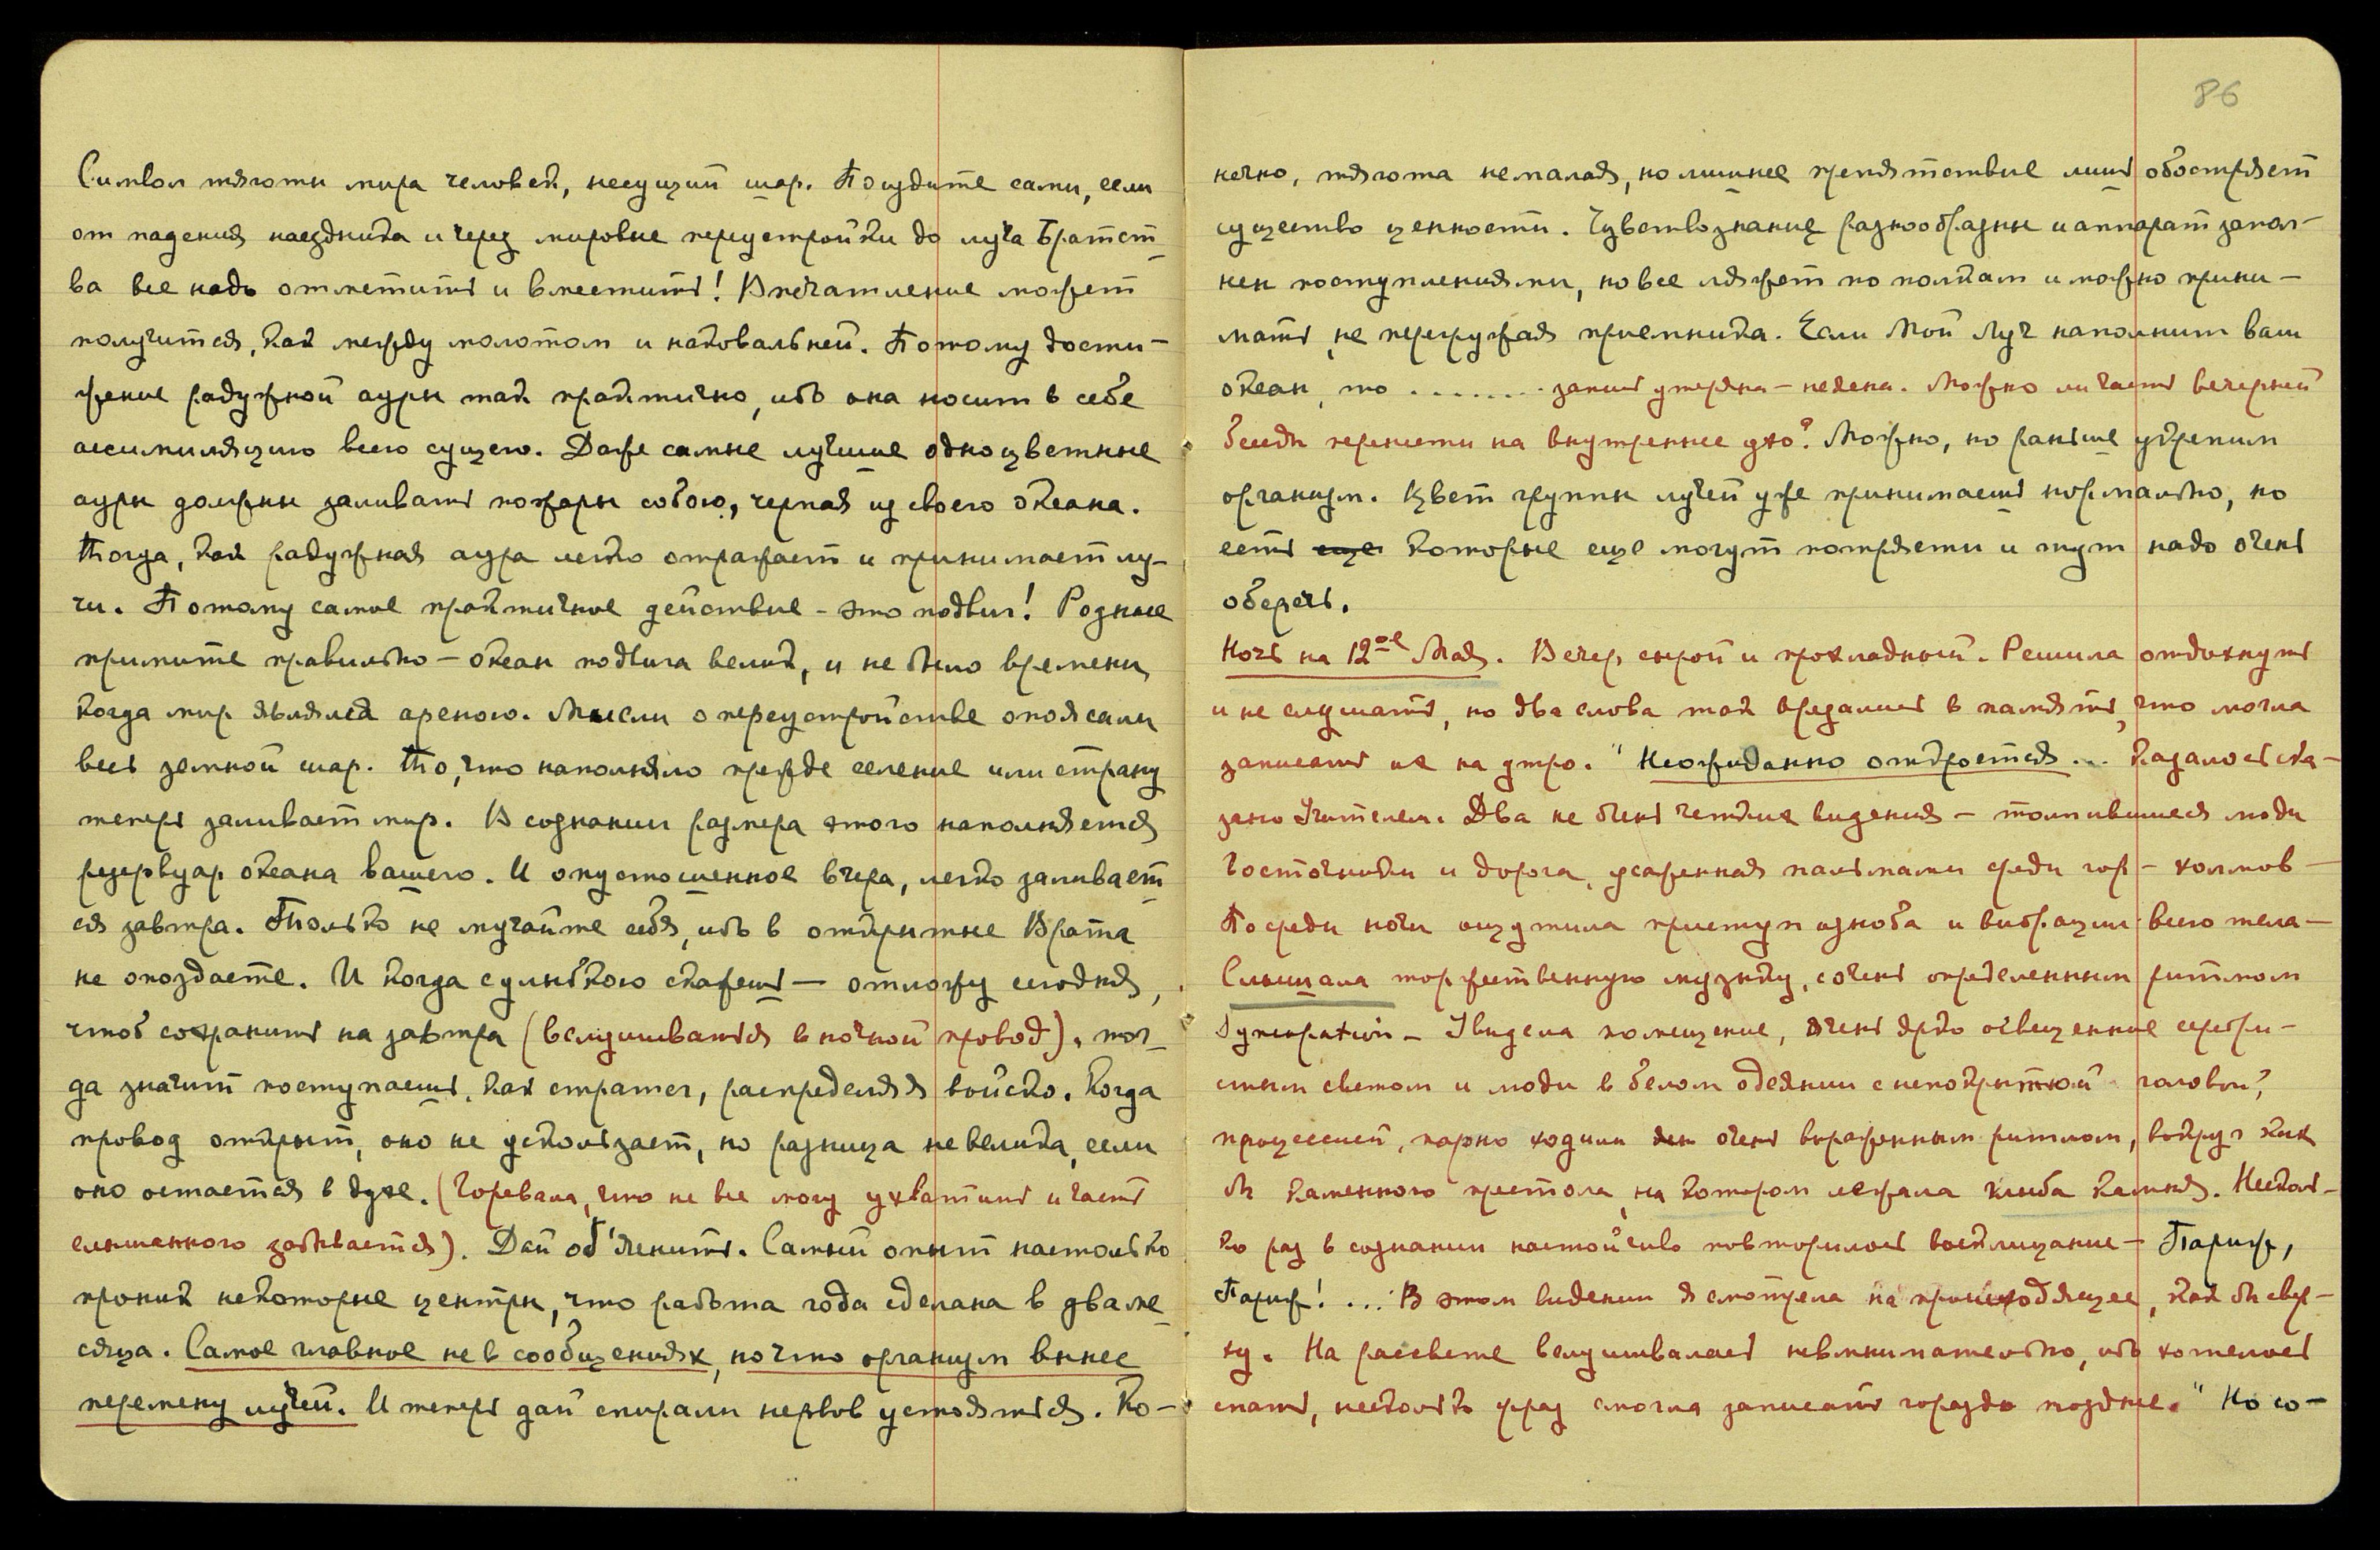 Символ тяготы мира человек, несущий шар. Посудите сами, если
от падения наездника и через мировые переустройки до луча Братст-
ва все надо отметить и вместить! Впечатление может
получится, как между молотом и наковальней. Потому дости-
жение радужной ауры так практично, ибо она носит в себе
ассимиляцию всего сущего. Даже самые лучшие одноцветные
ауры должны заливать пожары собою, черпая из своего океана.
Тогда, как радужная аура легко отражает и принимает лу-
чи. Потому самое практичное действие - это подвиг! Родные
примите правильно - океан подвига велик, и не было времени,
когда мир являлся ареною. Мысли о переустройстве опоясали
весь земной шар. То, что наполняло прежде селение или страну
теперь заливает мир. В сознании размера этого наполняется
резервуар океана вашего. И опустошенное вчера, легко заливает-
ся завтра. Только не мучайте себя, ибо в открытые Врата
не опоздаете. И когда с улыбкою скажешь — отложу сегодня,
чтоб сохранить на завтра (вслушиваться в ночной провод), тог-
да значит поступаешь, как стратег, распределяя войско. Когда
провод открыт, оно не ускользает, но разница невелика, если
оно остается в духе. (Горевала, что не все могу ухватить и часть
слышанного забывается). Дай об'яснить. Самый опыт настолько
проник некоторые центры, что работа года сделана в два ме-
сяца. Самое главное не в сообщениях, но что организм вынес
перемену лучей. И теперь дай спирали нервов устояться. Ко-
86
нечно, тягота немалая, но лишнее препятствие лишь обостряет
существо ценности. Чувствознание разнообразны и аппарат запол-
нен поступлениями, но все ляжет по полкам и можно прини-
мать, не перегружая приемника. Если Мой Луч наполнит ваш
океан, то ........ запись утеряна - неясна. Можно ли часть вечерней
беседы перенести на внутреннее ухо? Можно, но раньше укрепим
организм. Цвет группы лучей уже принимаешь нормально, но
есть еще которые еще могут потрясти и тут надо очень
оберечь.
Ночь на 12ое Мая. Вечер сырой и прохладный. Решила отдохнуть
и не слушать, но два слова так врезались в память, что могла
записать их на утро. "Неожиданно откроется... Казалось ска-
зано Учителем. Два не очень четкие видения - толпившиеся люди
Восточники и дорога, усаженная пальмами среди гор - холмов —
Посреди ночи ощутила приступ озноба и вибрации всего тела —
Слышала торжественную музыку, с очень определенным ритмом
Увидела помещение, очень ярко освещенное серебри-
стым светом и люди в белом одеянии с непокрытой головой,
процессией, парно ходили очень выраженным ритмом, вокруг как
бы каменного престола, на котором лежала глыба камня. Несколь-
ко раз в сознании настойчиво повторилось восклицание - Париж,
Париж! ... В этом видении я смотрела на происходящее, как бы свер-
ху. На рассвете вслушивалась невнимательно, ибо хотелось
спать, несколько фраз смогла записать гораздо позднее. " Но со-